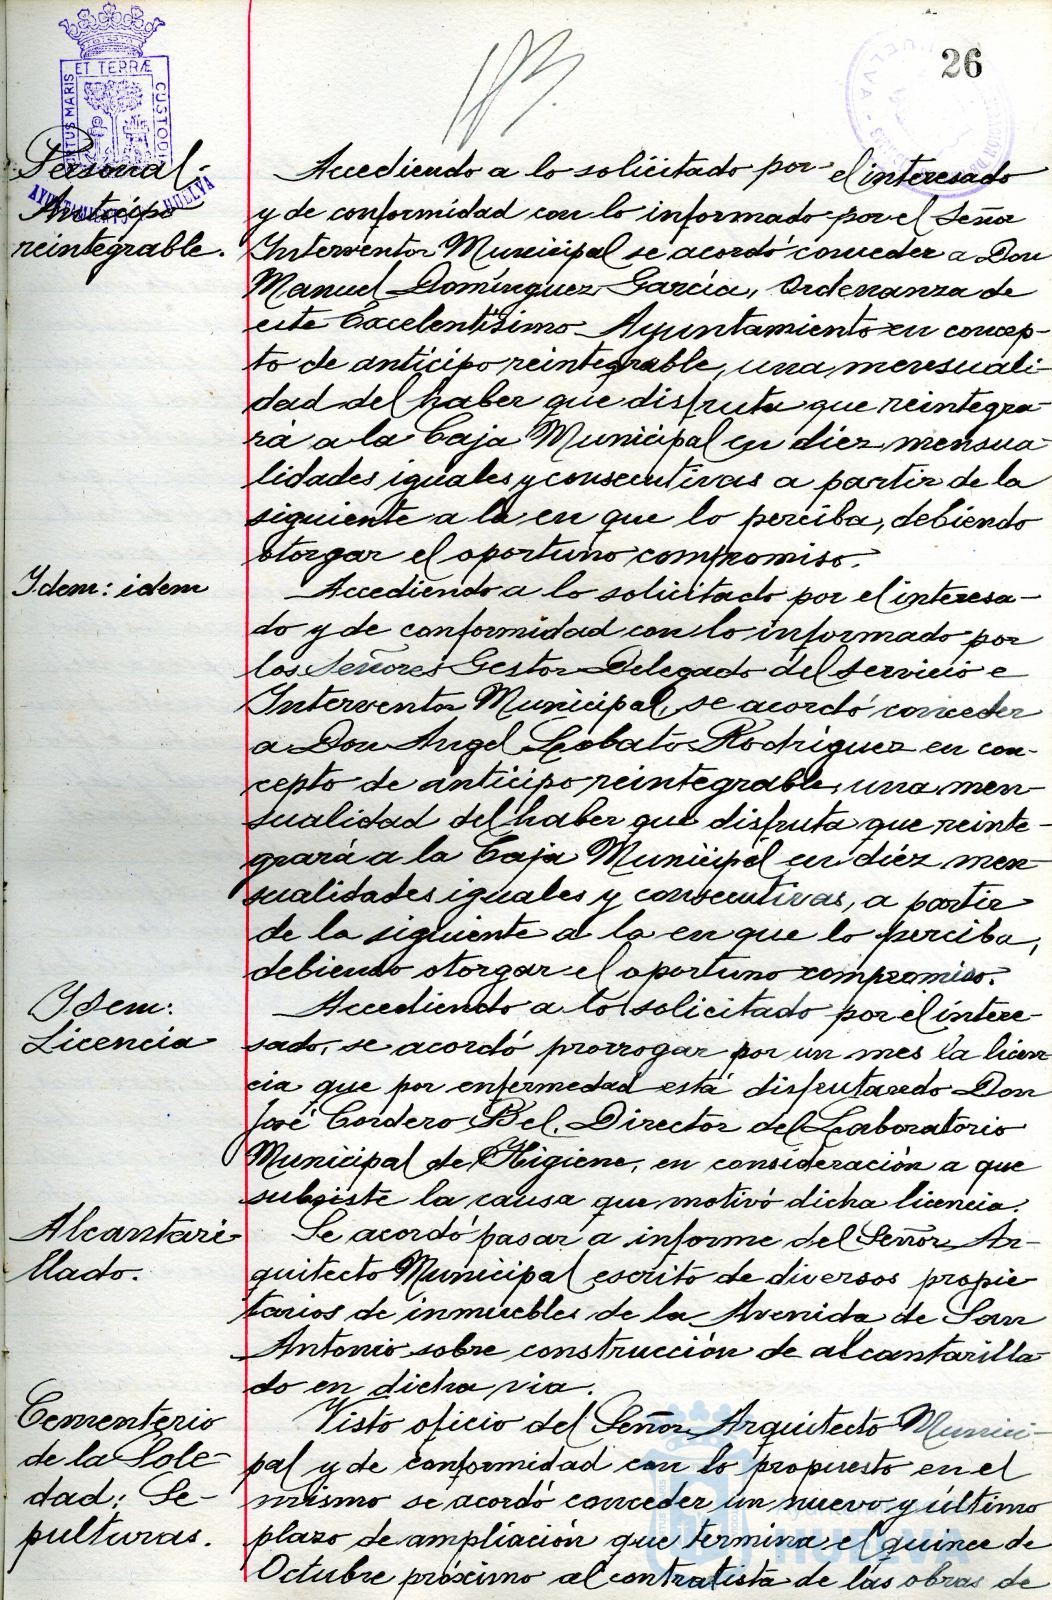 26
PORTUS MARIS ET TERRÆ CUSTODIA
AYUNTAMIENTO HUELVA
193
Personal.
Anticipo
reintegrable.
Accediendo a lo solicitado por el interesado
y de conformidad con lo informado por el Señor
Interventor Municipal se acordó conceder a Don
Manuel Domínguez García, Ordenanza de
este Excelentísimo Ayuntamiento en concep-
to de anticipo reintegrable, una mensuali-
dad del haber que disfruta que reintegra-
rá a la Caja Municipal en diez mensua-
lidades iguales y consecutivas a partir de la
siguiente a la en que lo perciba, debiendo
otorgar el oportuno compromiso.
Idem: idem
Accediendo a lo solicitado por el interesa-
do y de conformidad con lo informado por
los Señores Gestor Delegado del servicio e
Interventor Municipal, se acordó conceder
a Don Angel Lobato Rodríguez en con-
cepto de anticipo reintegrable, una men-
sualidad del haber que disfruta que reinte-
grará a la Caja Municipal en diez men-
sualidades iguales y consecutivas, a partir
de la siguiente a la en que lo perciba,
debiendo otorgar el oportuno compromiso.
Idem:
Licencia
Accediendo a lo solicitado por el intere-
sado, se acordó prorrogar por un mes la licen-
cia que por enfermedad está disfrutando Don
José Cordero Bel, Director del Laboratorio
Municipal de Higiene, en consideración a que
subsiste la causa que motivó dicha licencia.
Alcantari-
llado.
Se acordó pasar a informe del Señor Ar-
quitecto Municipal escrito de diversos propie-
tarios de inmuebles de la Avenida de San
Antonio sobre construcción de alcantarilla-
do en dicha via.
Cementerio
de la Sole-
dad: Se-
pulturas.
Visto oficio del Señor Arquitecto Munici-
pal y de conformidad con lo propuesto en el
mismo se acordó conceder un nuevo y último
plazo de ampliación que termina el quince de
Octubre próximo al contratista de las obras de
Ayuntamiento
HUELVA